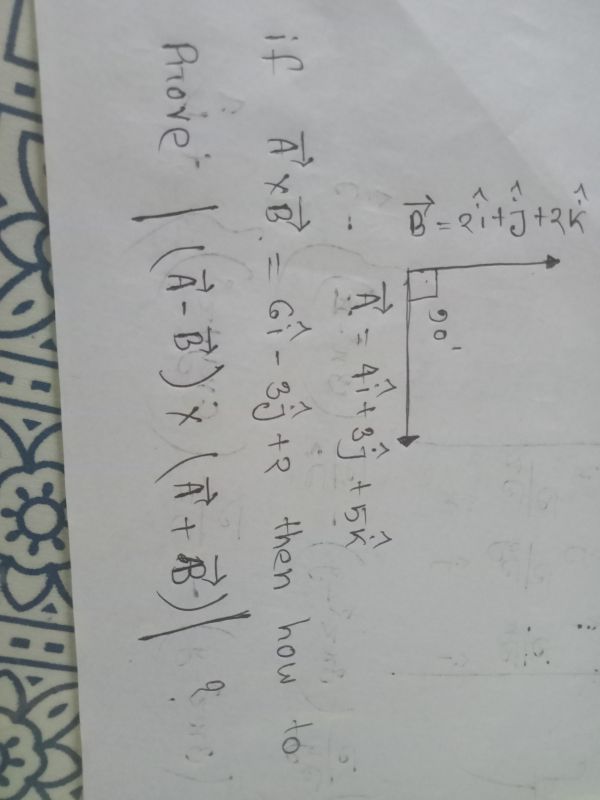 B⃗ = 2î + ĵ + 2k̂
90°
A⃗ = 4î + 3ĵ + 5k̂
if A⃗ × B⃗ = 6î - 3ĵ + 2 then how to
Prove | (A⃗ - B⃗) × (A⃗ + B⃗) |